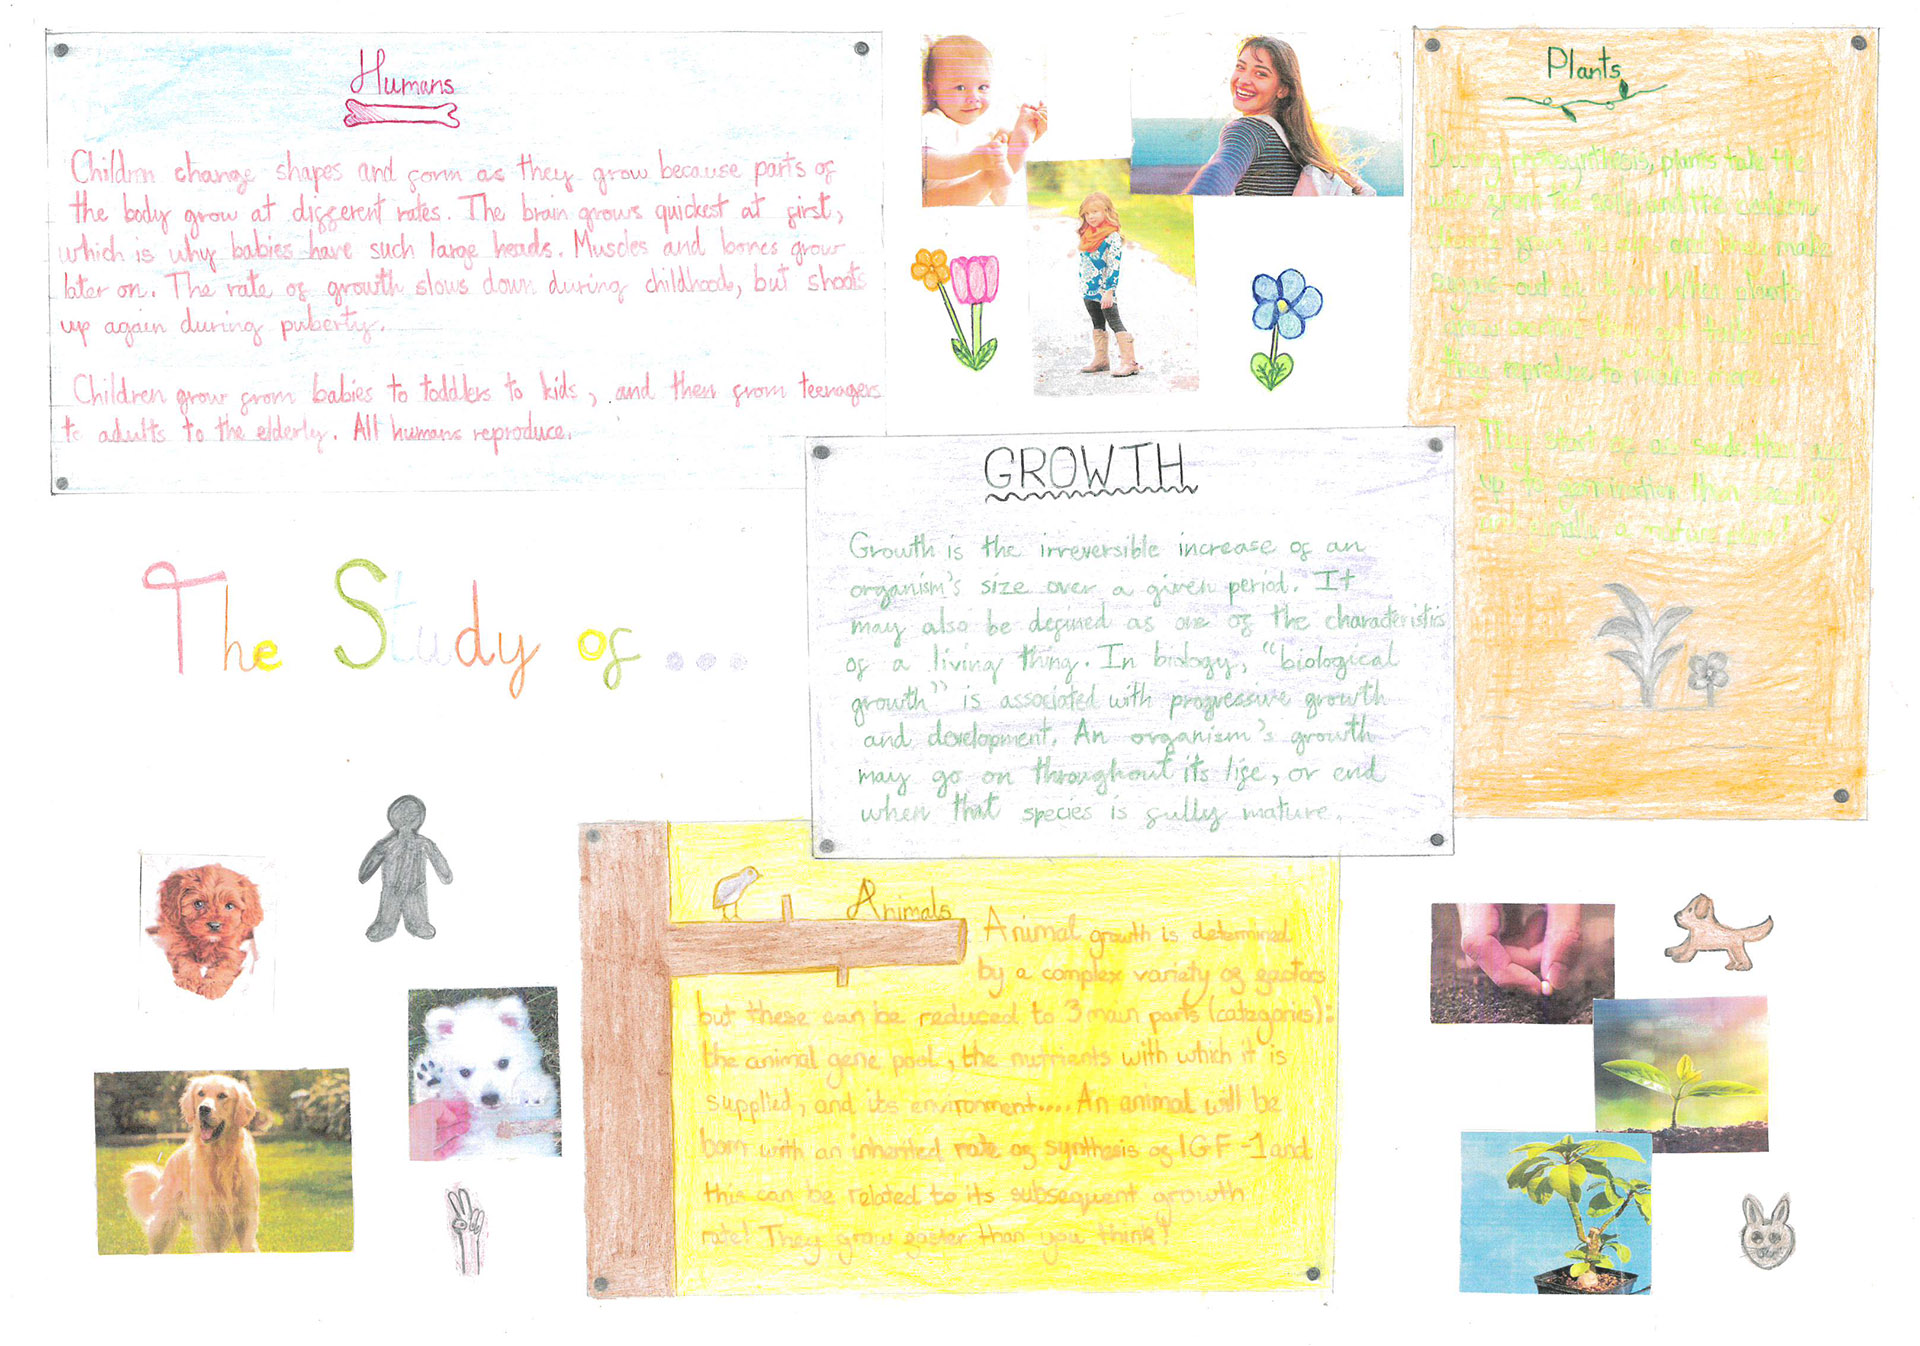 Humans
Children change shapes and form as they grow because parts of
the body grow at different rates. The brain grows quickest at first,
which is why babies have such large heads. Muscles and bones grow
later on. The rate of growth slows down during childhood, but shoots
up again during puberty.
Children grow from babies to toddlers to kids, and then from teenagers
to adults to the elderly. All humans reproduce.
Plants
During photosynthesis, plants take the
water from the soil, and the carbon
from the and then make
sugars out of it. When plants
they reproduce to make more.
They start of as seeds that go
up to germination then seedling
and finally a mature plant!
The Study of...
GROWTH
Growth is the irreversible increase of an
organism's size over a given period. It
may also be defined as one of the characteristics
of a living thing. In biology, "biological
growth" is associated with progressive growth
and development. An organism's growth
may go on throughout its life, or end
when that species is fully mature.
Animals
Animal growth is determined
by a complex variety of factors
but these can be reduced to 3 main parts (categories):
the animal gene pool, the nutrients with which it is
supplied, and its environment.... An animal will be
born with an inherited rate of synthesis of IGF-1 and
this can be related to its subsequent growth
rate! They grow faster than you think!